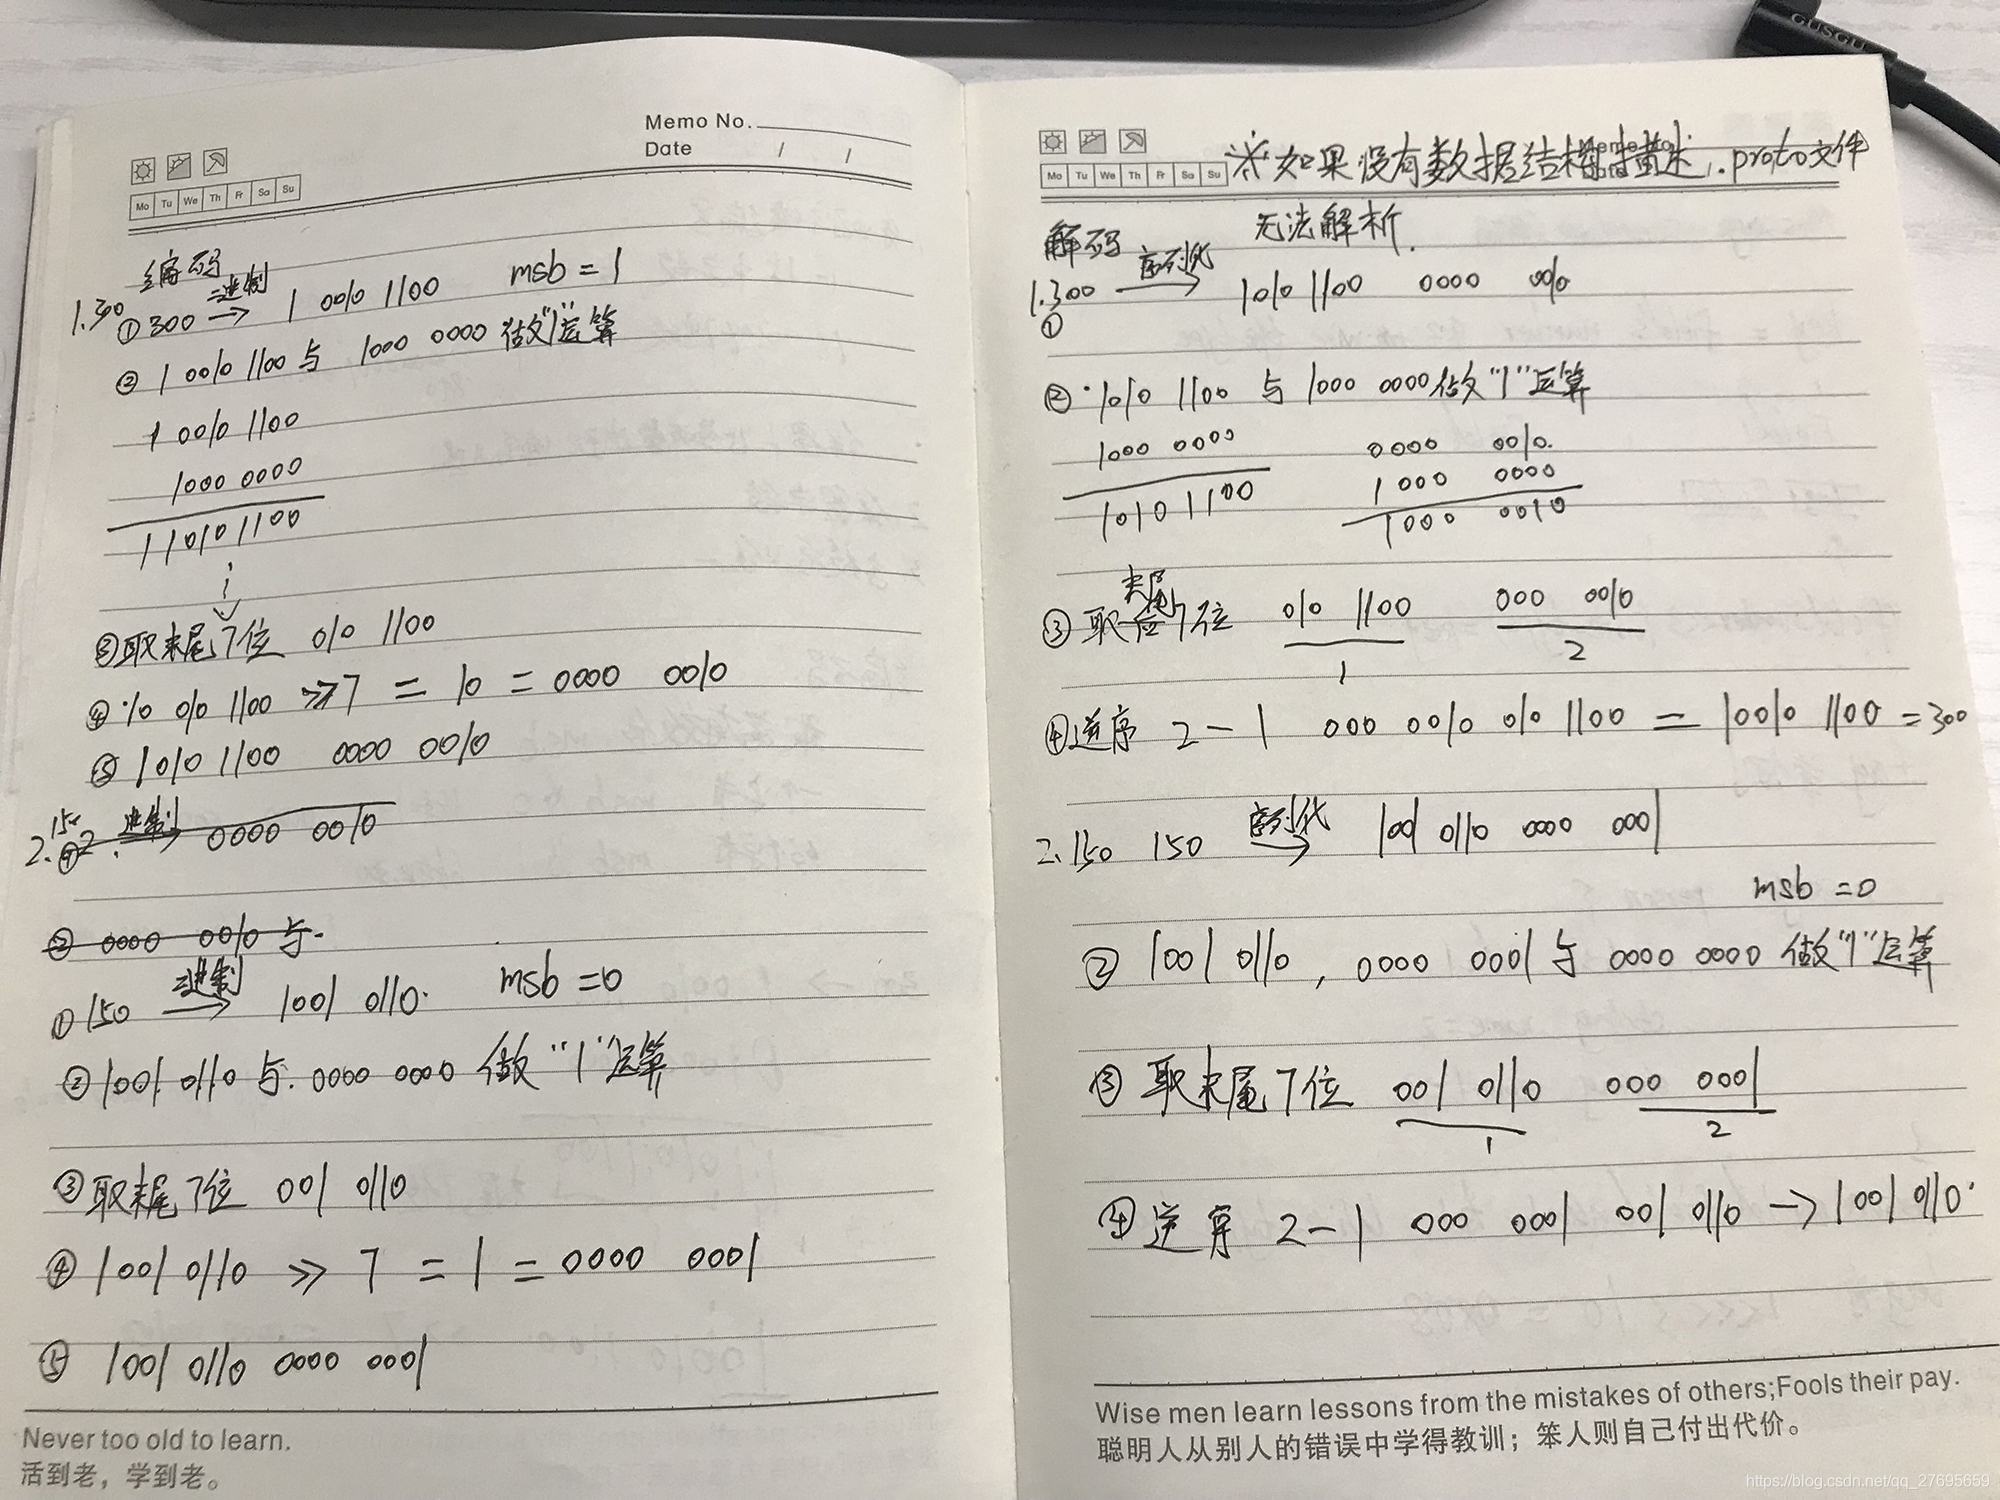 Memo No.
Date / /
Mo Tu We Th Fr Sa Su
编码
1.300
二进制
① 300 → 1 0010 1100 msb = 1
② 1 0010 1100 与 1000 0000 做"|"运算
1 0010 1100
1000 0000
1 1010 1100
③取末尾7位 010 1100
④ 10 010 1100 >>7 = 10 = 0000 0010
⑤ 1010 1100 0000 0010
2.150
① 2. 进制 → 0000 0010
② 0000 0010 与
二进制
① 150 → 1001 0110. msb = 0
② 1001 0110 与. 0000 0000 做"|"运算
③ 取末尾7位 001 0110
④ 1001 0110 >> 7 = 1 = 0000 0001
⑤ 1001 0110 0000 0001
Never too old to learn.
活到老，学到老。
Mo Tu We Th Fr Sa Su
※如果没有数据结构描述.proto文件
无法解析.
解码
序列化
1.300 → 1010 1100 0000 0010
①
② 1010 1100 与 1000 0000 做"|"运算
1000 0000 0000 0010.
1000 0000
1010 1100 1000 0010
末尾
③ 取 7位 010 1100 000 0010
1 2
④逆序 2-1 000 0010 010 1100 = 10010 1100 = 300
序列化
2.150 150 → 1001 0110 0000 0001
msb = 0
② 1001 0110 , 0000 0001 与 0000 0000 做"|"运算
③ 取末尾7位 001 0110 000 0001
1 2
④ 逆序 2-1 000 0001 001 0110 → 1001 0110.
Wise men learn lessons from the mistakes of others;Fools their pay.
聪明人从别人的错误中学得教训；笨人则自己付出代价。
https://blog.csdn.net/qq_27695659